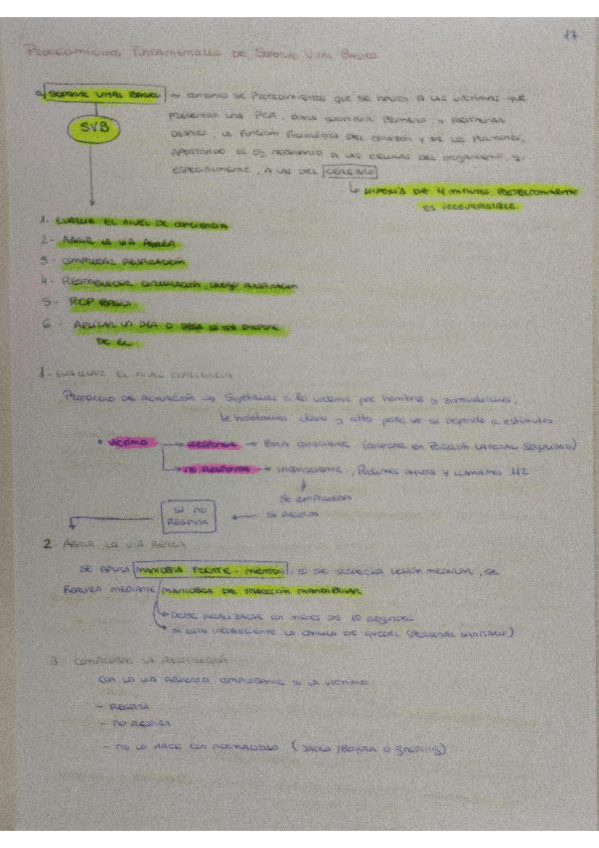 17
Procedimientos Fundamentales de Soporte Vital Básico
SOPORTE VITAL BÁSICO → conjunto de procedimientos que se aplica a las víctimas que
SVB
presentan una PCR, para sustituir primero y restaurar
después, la función fisiológica del corazón y de los pulmones,
aportando el O2 necesario a las células del organismo, y
especialmente, a las del cerebro
↳ hipoxia de 4 minutos, posteriormente
es irreversible
1- Evaluar el nivel de conciencia
2- Abrir la vía aérea
3- Comprobar respiración
4- Restablecer circulación, luego
5- RCP básica
6- Aplicar un DEA o DESA si se dispone
de él
1- Evaluar el nivel conciencia
Protocolo de actuación → Sujetamos a la víctima por hombros y zarandeamos,
le hablamos claro y alto para ver si responde a estímulos
• Víctima → Responde → Está consciente (colocar en posición lateral seguridad)
→ No responde → inconsciente, Pedimos ayuda y llamamos 112
↓
Se comprueba
Si no respira ← si respira
2- Abrir la vía aérea
Se aplica maniobra frente-mentón, si se sospecha lesión medular, se
realiza mediante maniobra de tracción mandibular
→ Debe realizarse en menos de 10 segundos
→ Si está inconsciente la cánula de Guedel (personal sanitario)
3 Comprobar la respiración
Con la vía abierta comprobamos si la víctima:
- Respira
- No respira
- No lo hace con normalidad (jadea/boquea o gasping)